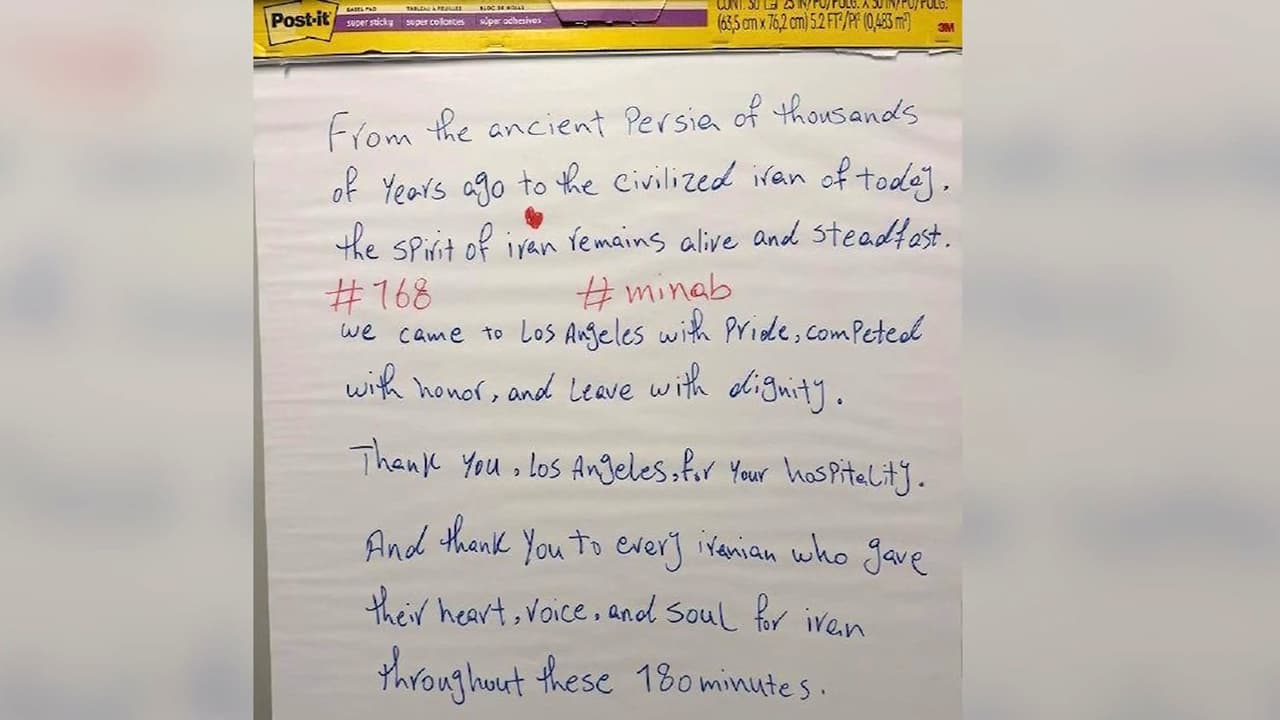 Post-it
EASEL PAD TABLEAU À FEUILLES BLOC DE HOJAS
super sticky super collantes súper adhesivos
(63,5 cm x 76,2 cm) 5.2 FT²/PI² (0,483 m²)
3M
From the ancient Persia of thousands
of Years ago to the civilized iran of today.
the spirit of iran remains alive and steadfast.
#168 #minab
we came to Los Angeles with Pride, competed
with honor, and Leave with dignity.
Thank you, Los Angeles, for Your hospitality.
And thank You to every iranian who gave
their heart, voice, and soul for iran
throughout these 180 minutes.